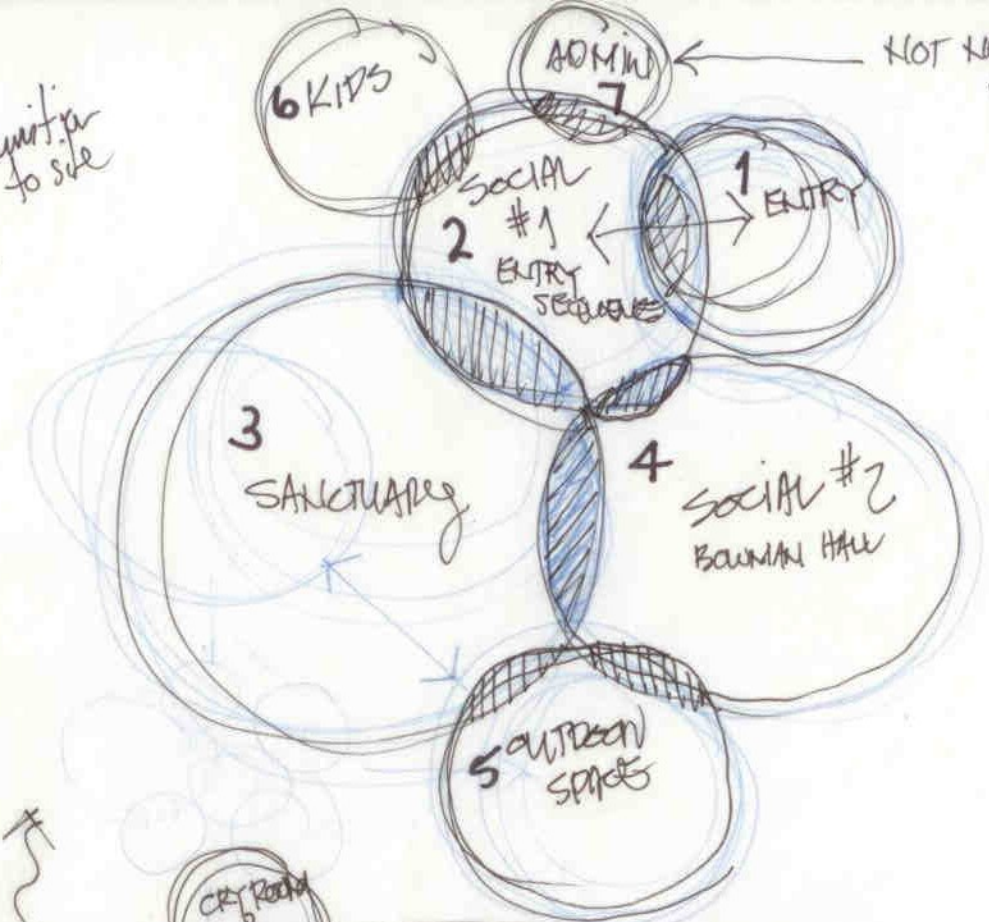 to site
6 KIDS
ADMIN
7
NOT
1
ENTRY
SOCIAL
#1
2
ENTRY
SEQUENCE
3
SANCTUARY
4
SOCIAL #2
BOWMAN HALL
5 OUTDOOR
SPACE
CRY ROOM